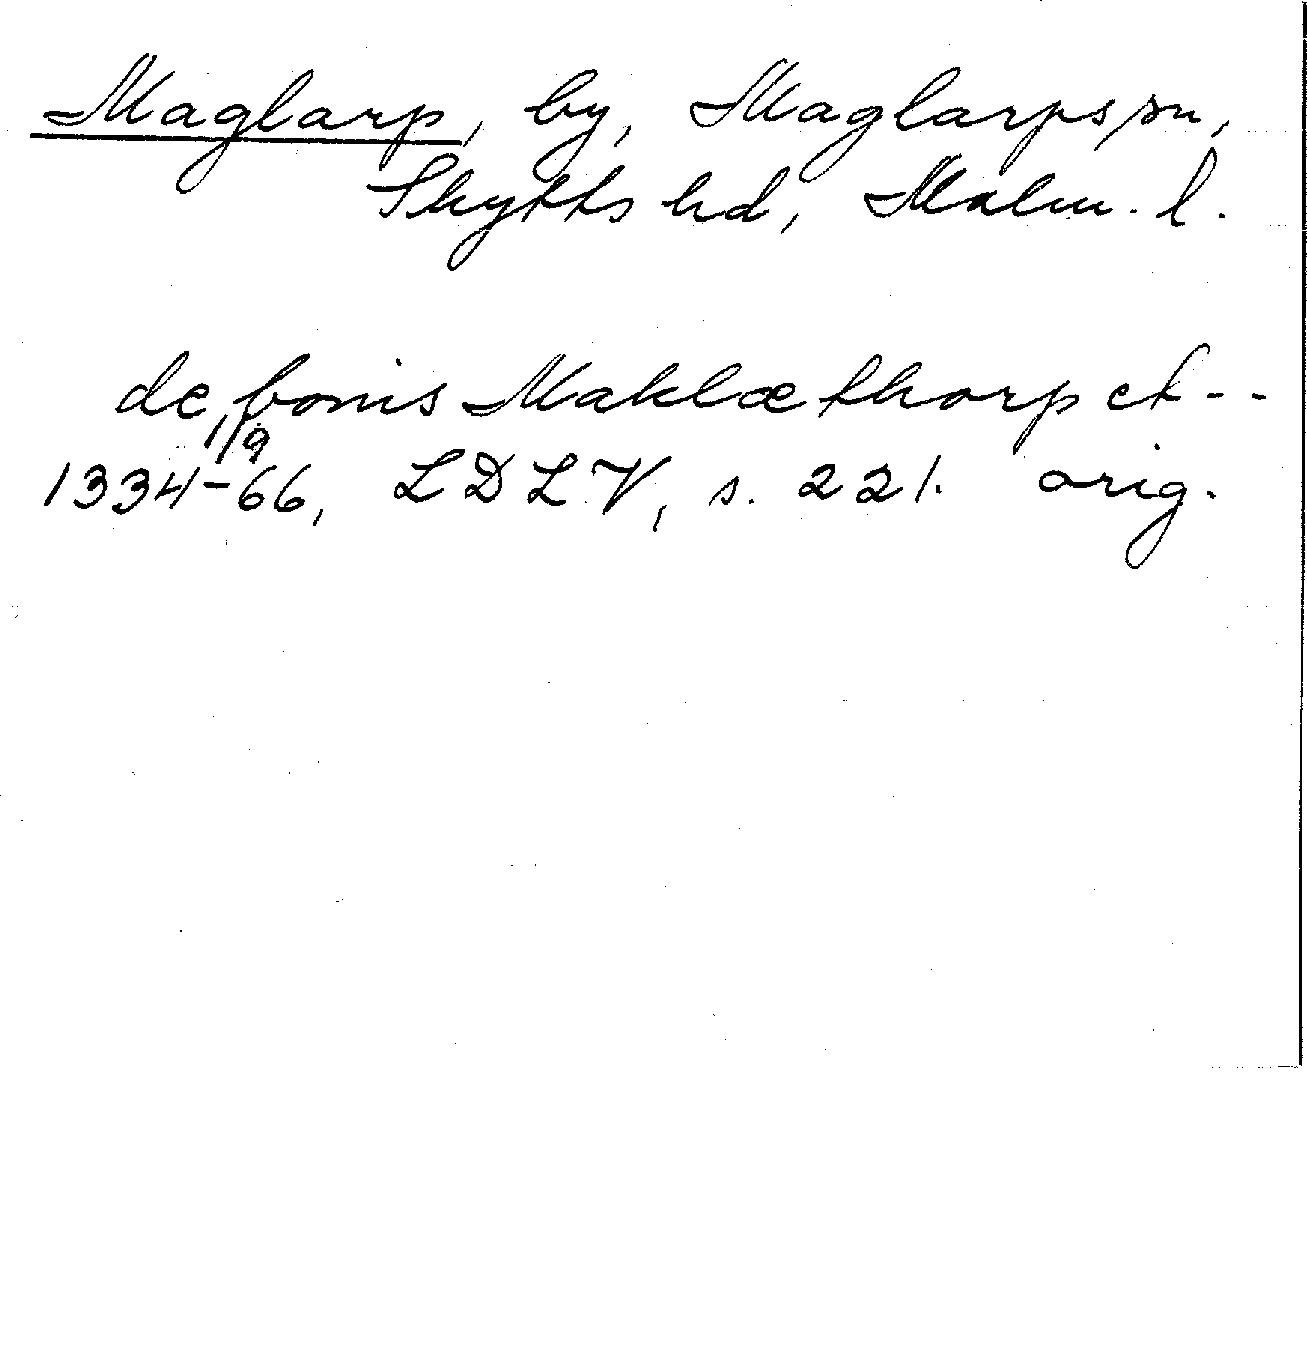 Maglarp, by, Maglarps sn,
Skytts hd, Malm. l.
de bonis Maklæthorp et --
1/9
1334-66, LDLV, s. 221. orig.